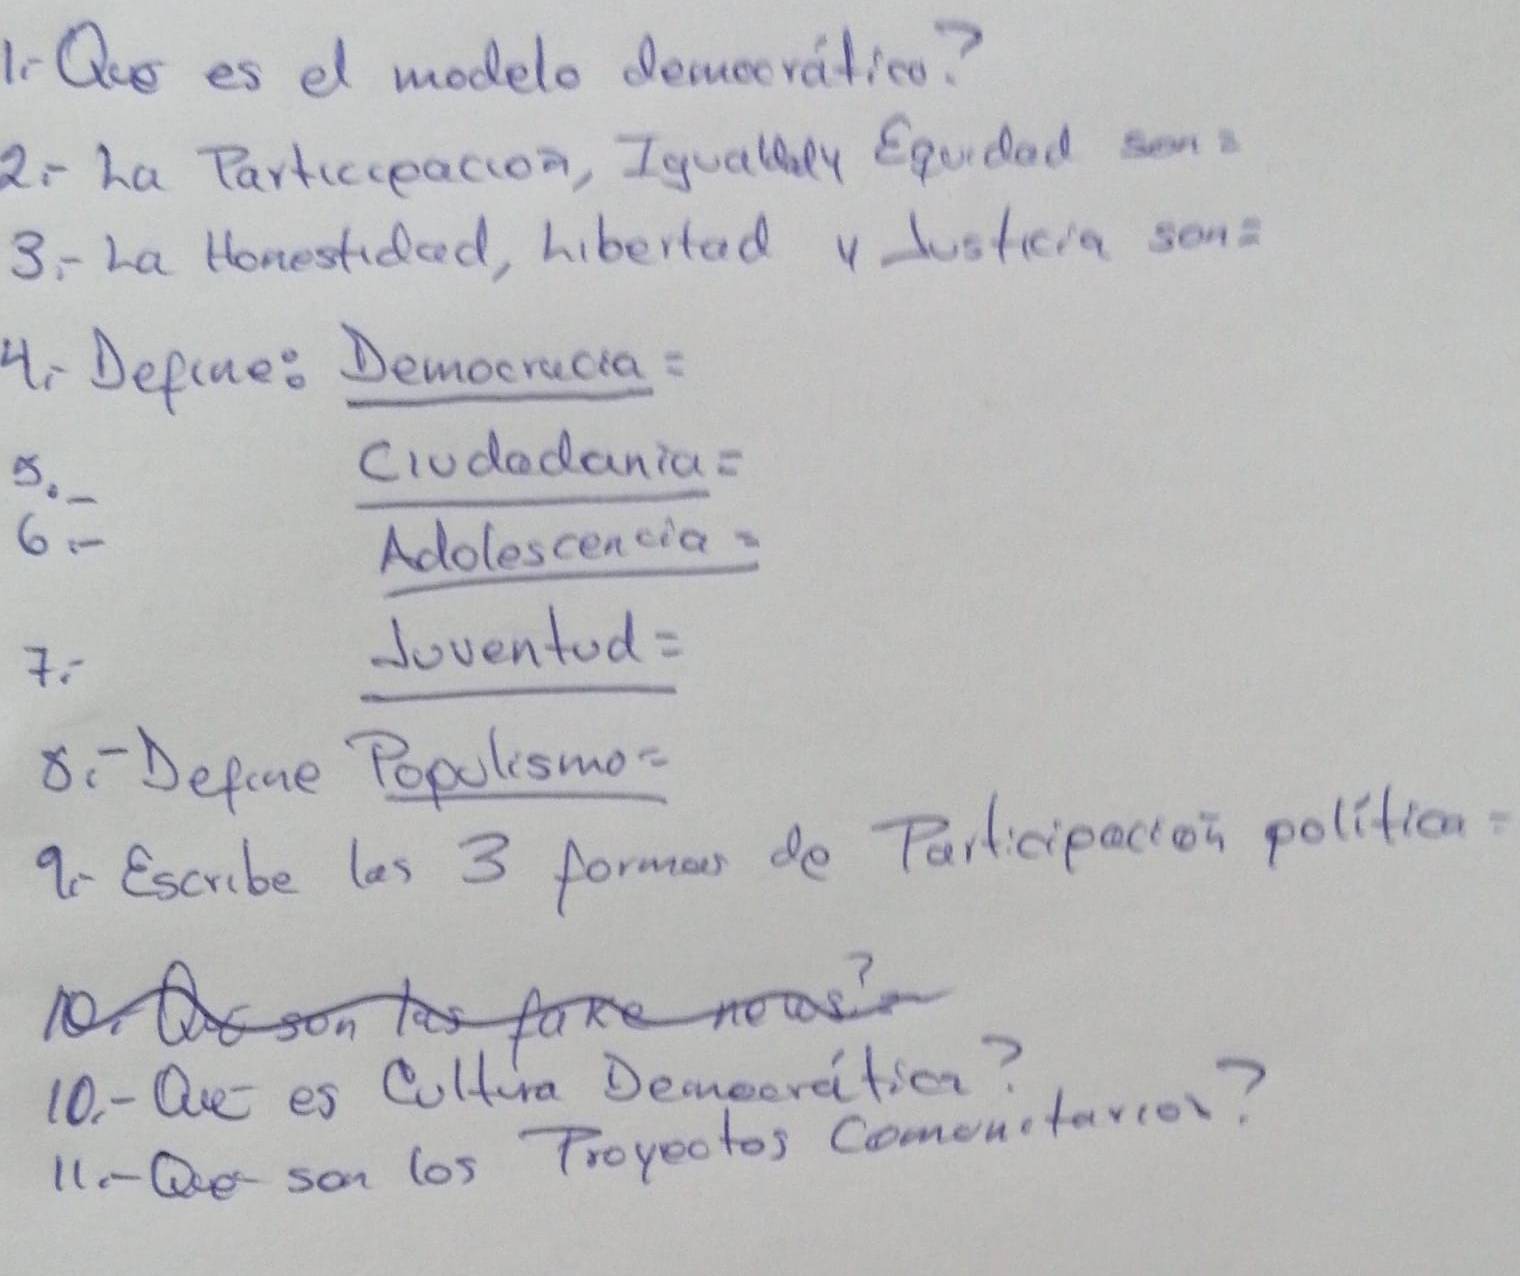 1.- Que es el modelo democrático?
2.- La Participación, Igualdad y Equidad son=
3.- La Honestidad, Libertad y Justicia son=
4.- Define: Democracia=
5.- Ciudadania=
6.- Adolescencia=
7.- Juventud=
8.- Define Populismo=
9.- Escribe las 3 formas de Participación política=
10. Que son las fake news?
10.- Que es Cultura Democrática?
11.- Que son los Proyectos Comunitarios?